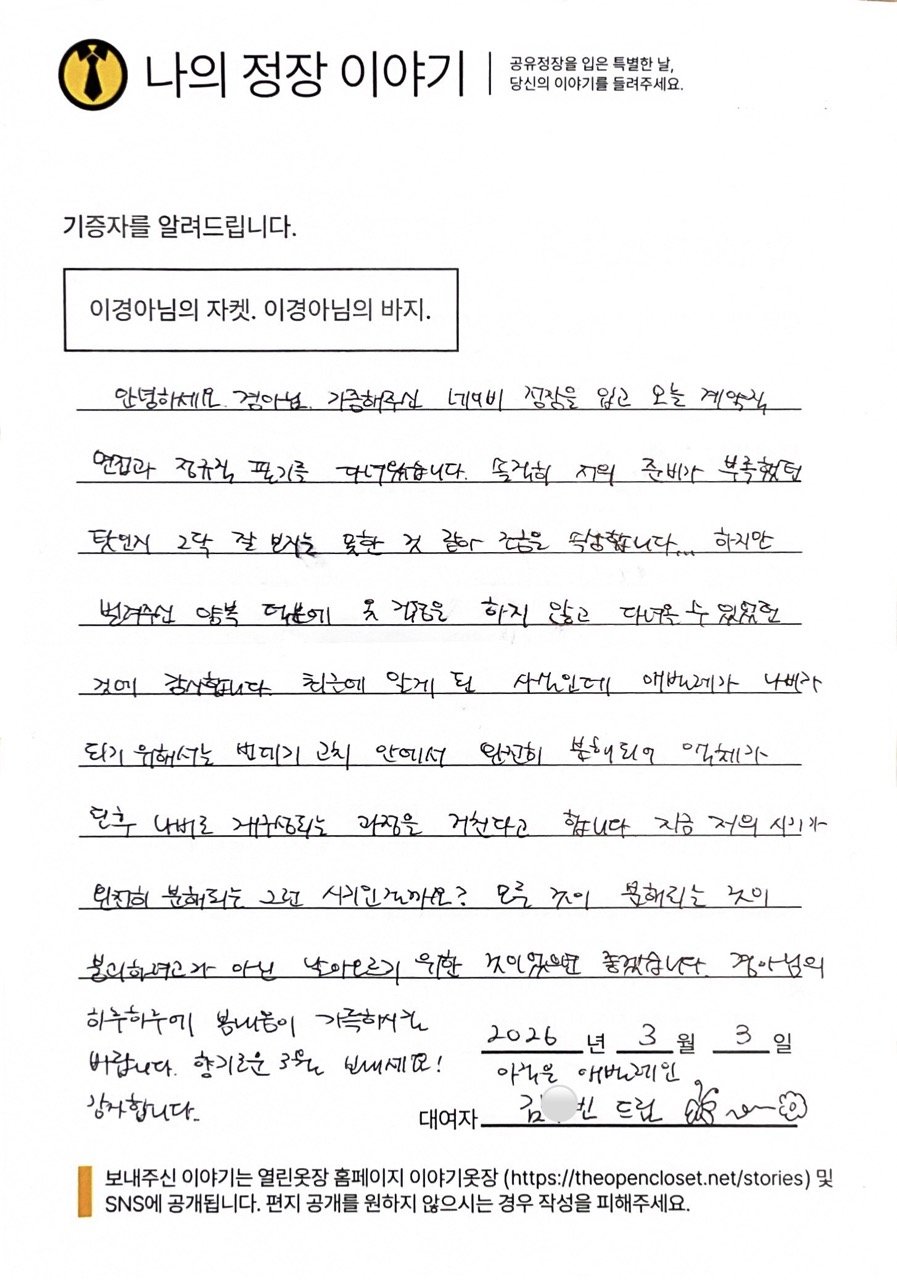 나의 정장 이야기
공유정장을 입은 특별한 날,
당신의 이야기를 들려주세요.
기증자를 알려드립니다.
이경아님의 자켓. 이경아님의 바지.
안녕하세요. 경아님. 기증해주신 네이비 정장을 입고 오늘 계약직
면접과 정규직 필기를 다녀왔습니다. 솔직히 저의 준비가 부족했던
탓인지 그닥 잘 보지는 못한 것 같아 조금은 속상합니다... 하지만
빌려주신 양복 덕분에 옷 걱정을 하지 않고 다녀올 수 있었던
것에 감사합니다. 최근에 알게 된 사실인데 애벌레가 나비가
되기 위해서는 번데기 고치 안에서 완전히 분해되어 액체가
된후 나비로 재구성되는 과정을 거친다고 합니다. 지금 저의 시기가
완전히 분해되는 그런 시기인걸까요? 모든 것이 분해되는 것이
붕괴하려고가 아닌 날아오르기 위한 것이었으면 좋겠습니다. 경아님의
하루하루에 봄내음이 가득하시길
바랍니다. 향기로운 3월 보내세요!
감사합니다.
2026 년 3 월 3 일
아직은 애벌레인
대여자 김 빈 드림
보내주신 이야기는 열린옷장 홈페이지 이야기옷장 (https://theopencloset.net/stories) 및
SNS에 공개됩니다. 편지 공개를 원하지 않으시는 경우 작성을 피해주세요.